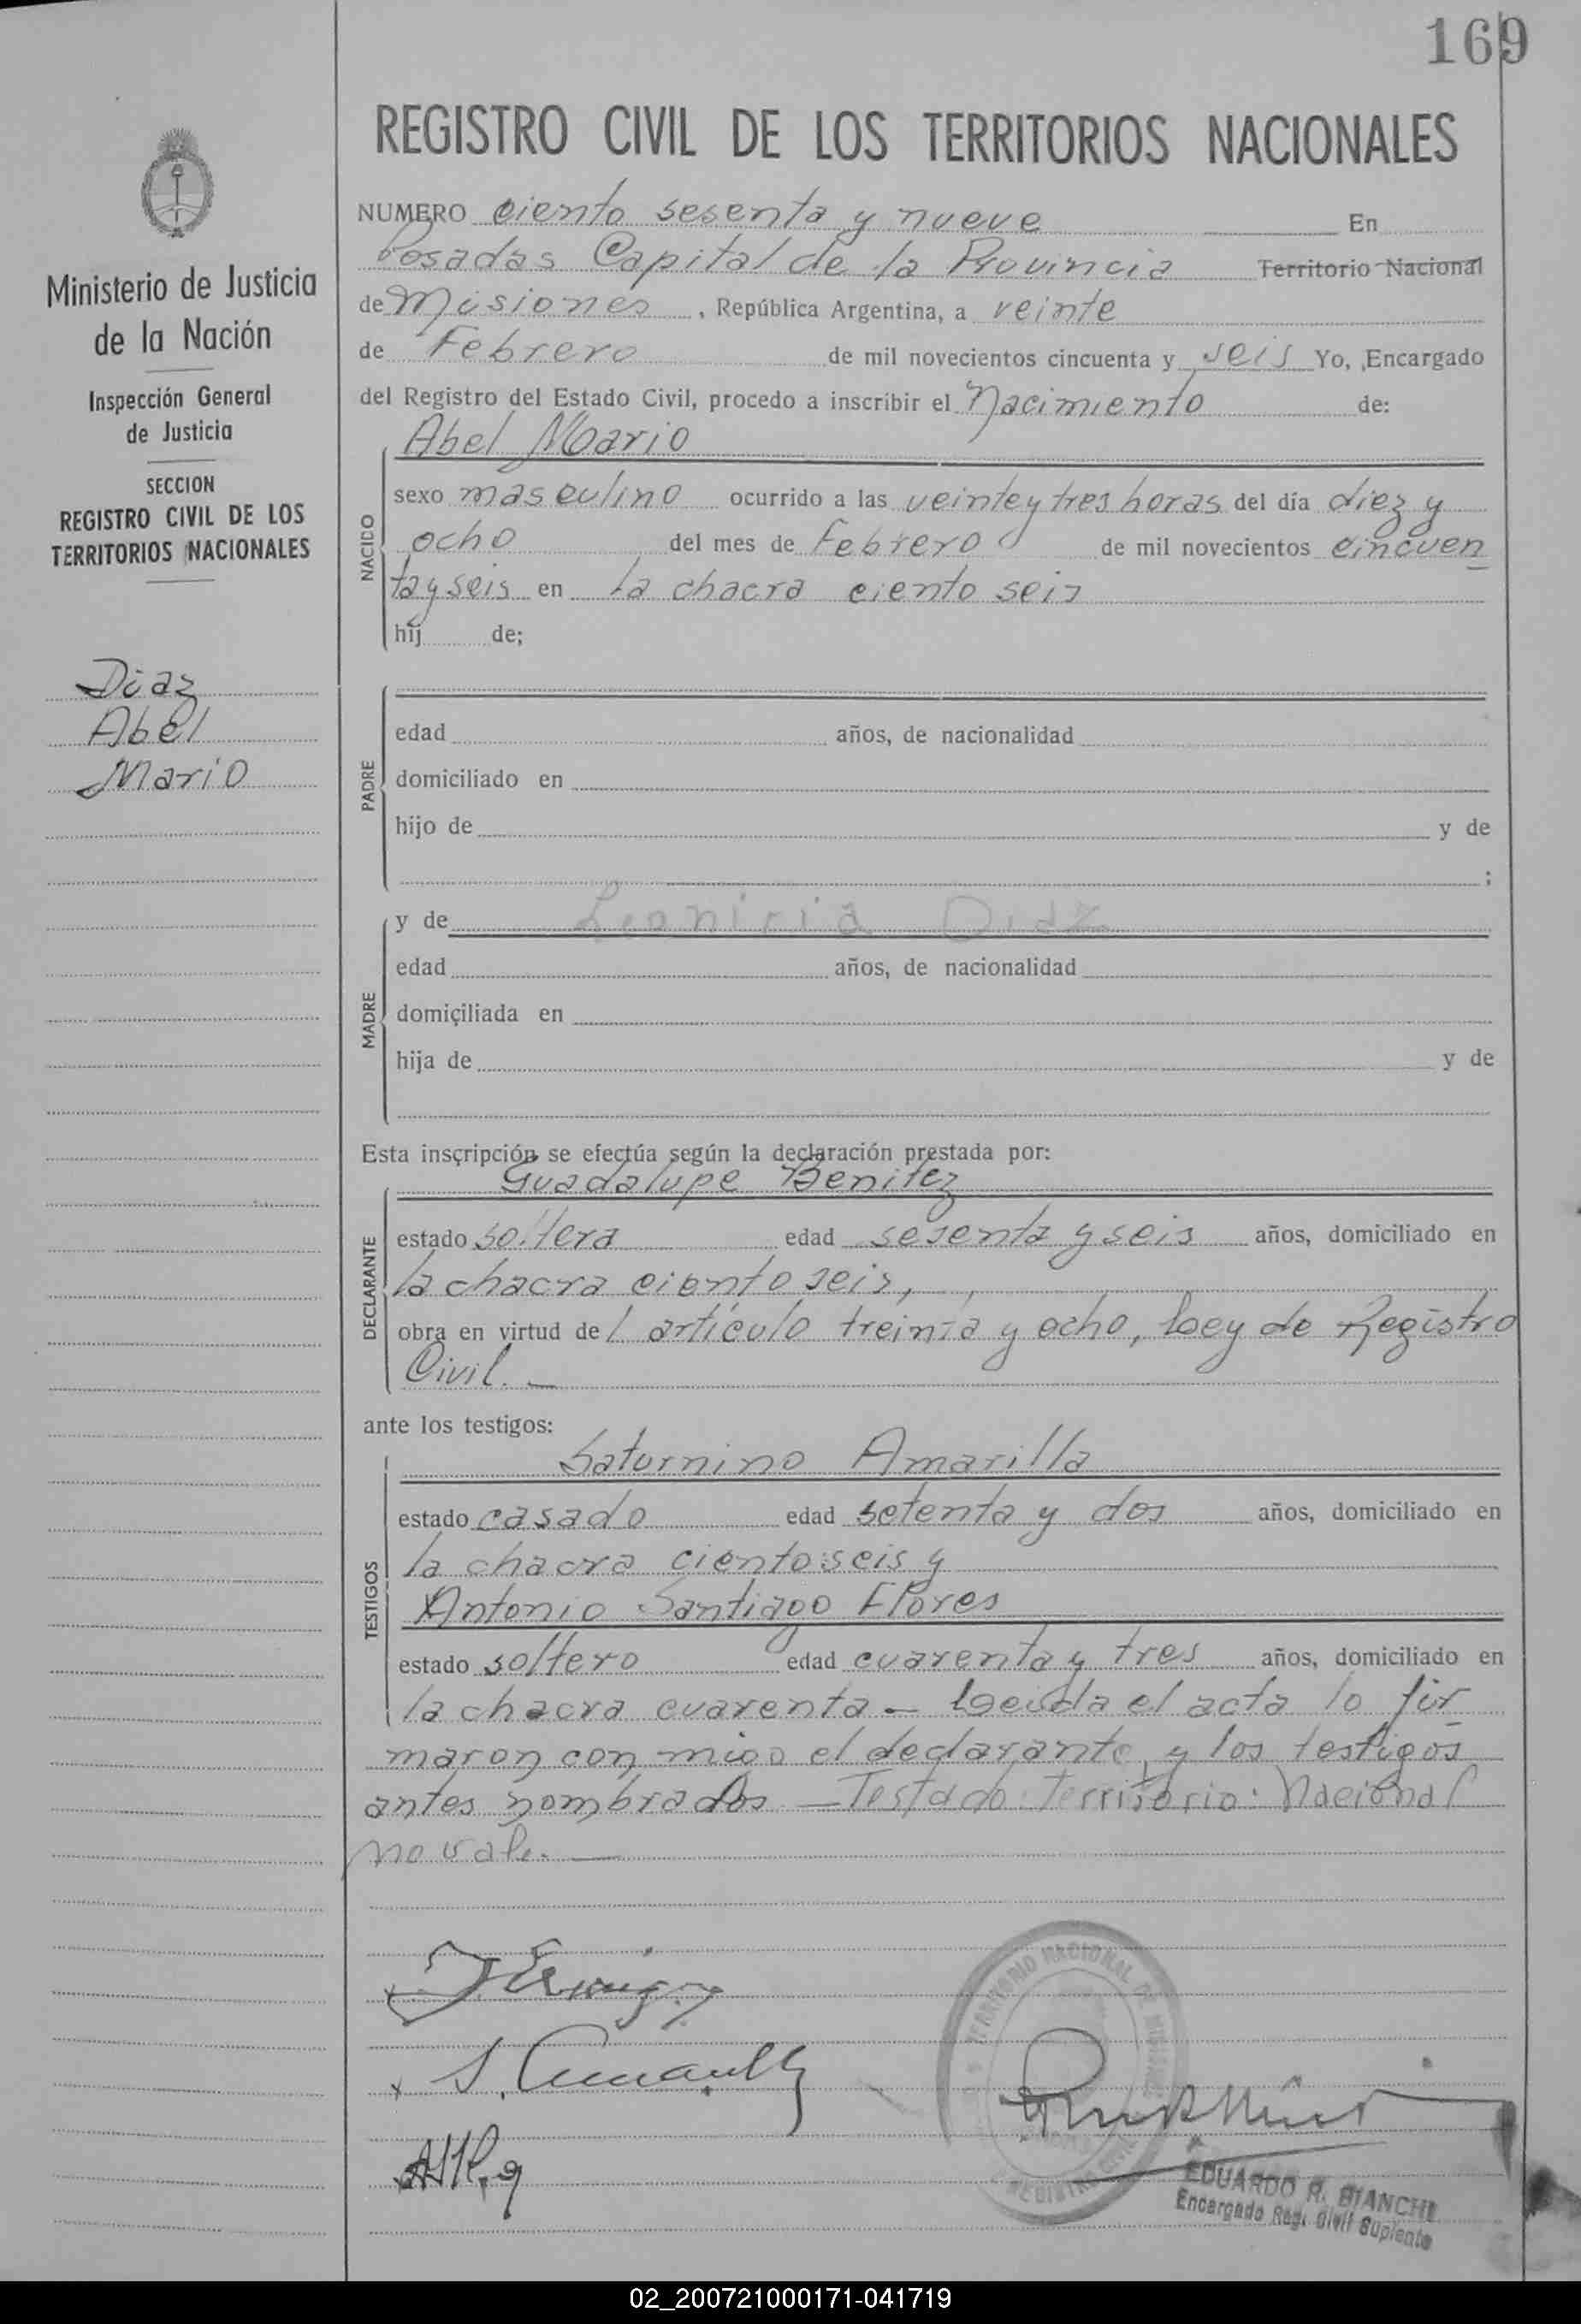 169
REGISTRO CIVIL DE LOS TERRITORIOS NACIONALES
Ministerio de Justicia
de la Nación
Inspección General
de Justicia
SECCION
REGISTRO CIVIL DE LOS
TERRITORIOS NACIONALES
Diaz
Abel
Mario
NUMERO ciento sesenta y nueve En
Posadas Capital de la Provincia Territorio Nacional
de Misiones, República Argentina, a veinte
de Febrero de mil novecientos cincuenta y seis Yo, Encargado
del Registro del Estado Civil, procedo a inscribir el Nacimiento de:
Abel Mario
NACIDO
sexo masculino ocurrido a las veinte y tres horas del día diez y
ocho del mes de Febrero de mil novecientos cincuen
ta y seis en la chacra ciento seis
hij de;
PADRE
edad años, de nacionalidad
domiciliado en
hijo de y de
;
MADRE
y de Diaz
edad años, de nacionalidad
domiciliada en
hija de y de
Esta inscripción se efectúa según la declaración prestada por:
Guadalupe Benitez
DECLARANTE
estado soltera edad sesenta y seis años, domiciliado en
la chacra ciento seis,
obra en virtud del artículo treinta y ocho, Ley de Registro
Civil. —
ante los testigos:
Saturnino Amarilla
TESTIGOS
estado casado edad setenta y dos años, domiciliado en
la chacra ciento seis y
Antonio Santiago Flores
estado soltero edad cuarenta y tres años, domiciliado en
la chacra cuarenta — Leida el acta lo fir
maron con migo el declarante y los testigos
antes nombrados — Testado: Territorio: Nacional
no vale. —
TERRITORIO NACIONAL DE MISIONES
EDUARDO R. BIANCHI
Encargado Reg. Civil Suplente
02_200721000171-041719